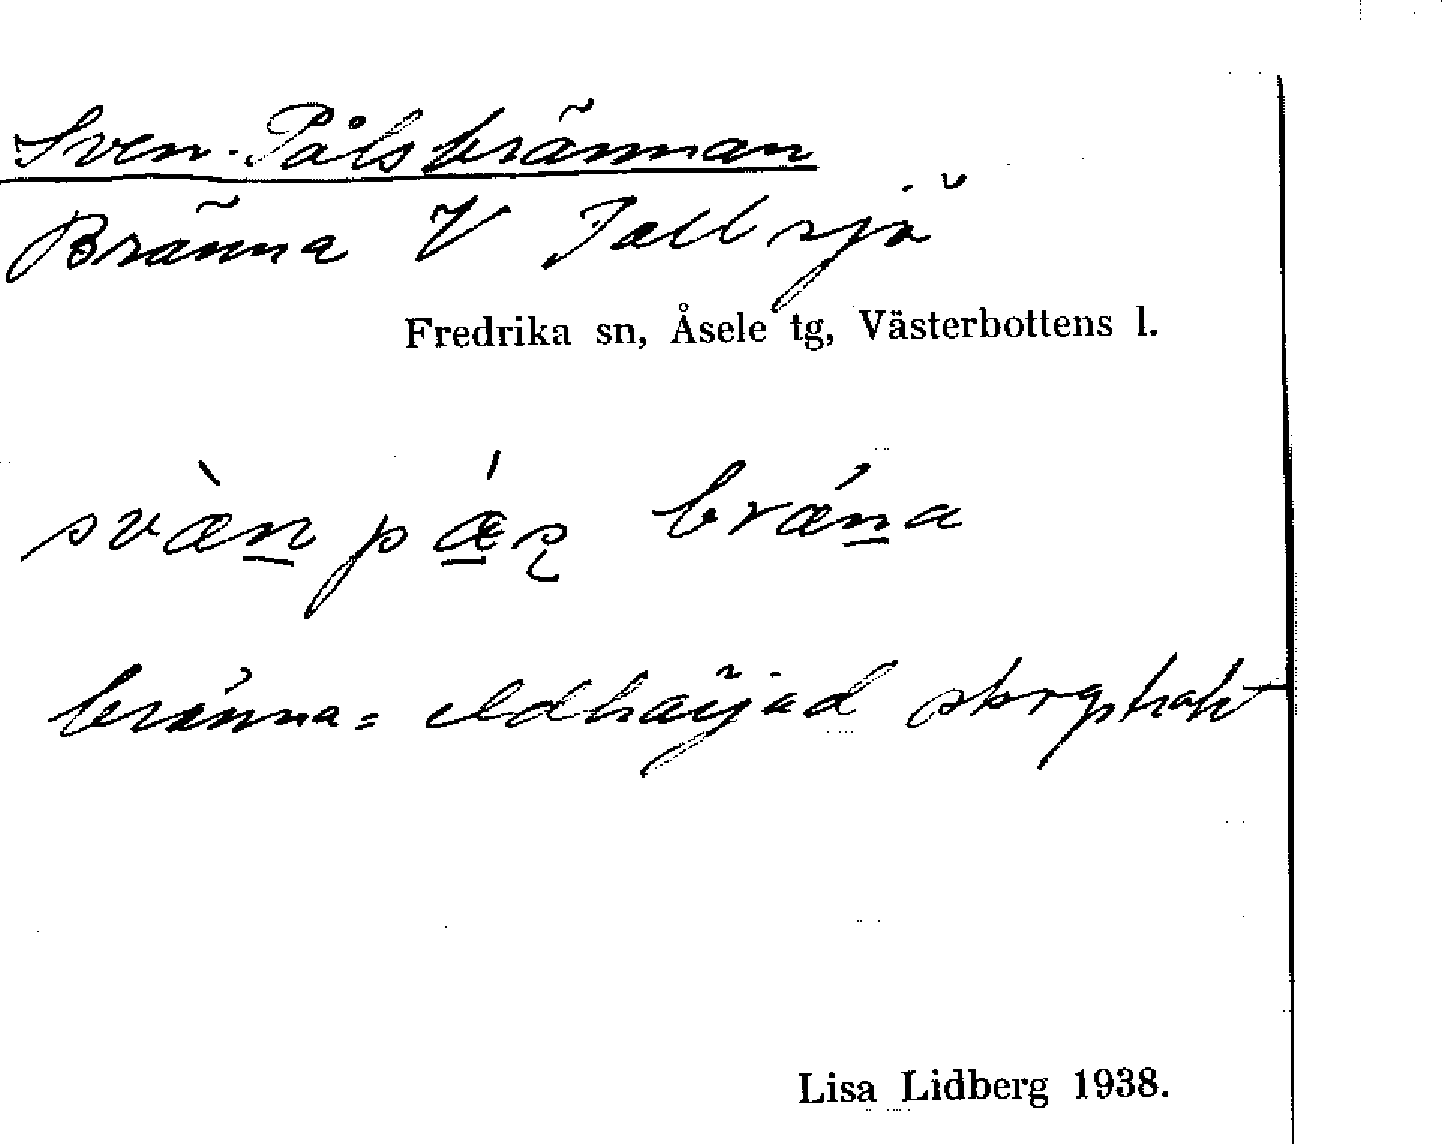 Sven-Pålsbrännan
Bränna V Tallsjö
Fredrika sn, Åsele tg, Västerbottens l.
svæ̀n̲ pǽ̲ʂ brǽn̲a
bränna = eldhärjad skogstrakt
Lisa Lidberg 1938.